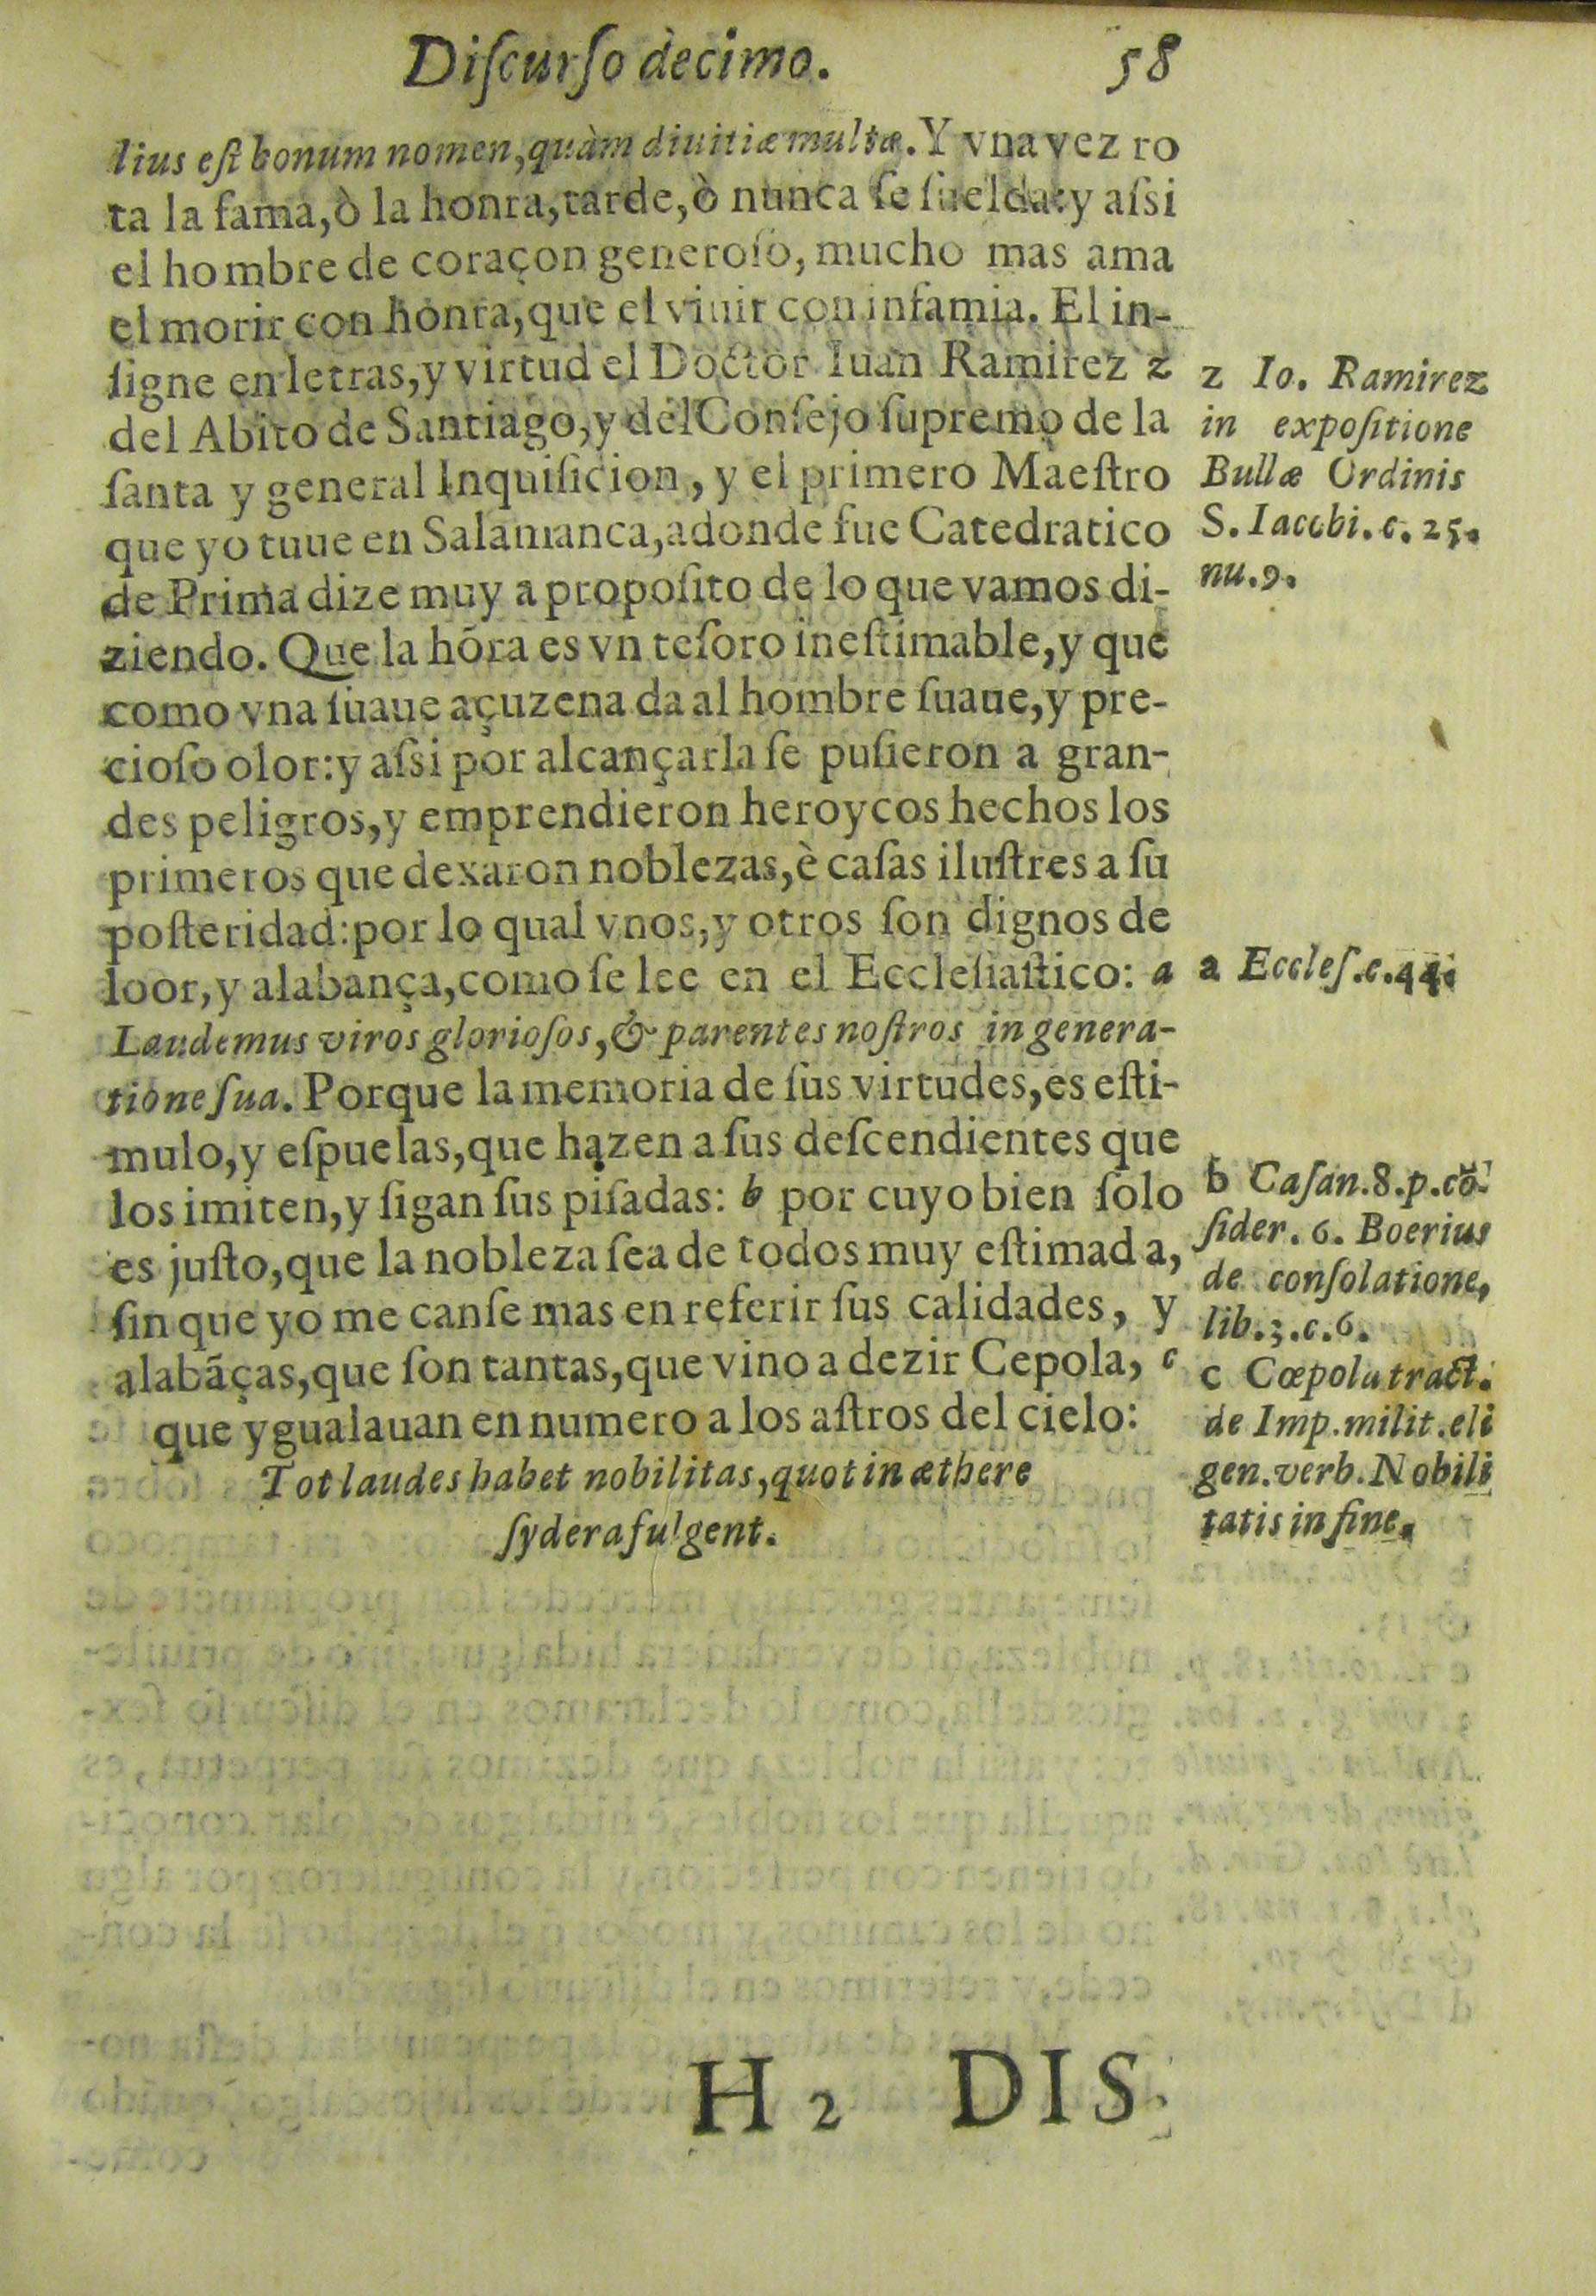 Diſcurſo dècimo. 58
lius eſt bonum nomen, quàm diuitiæ multæ. Y vna vez ro
ta la fama, ò la honra, tarde, ò nunca ſe ſuelda: y aſsi
el hombre de coraçon generoſo, mucho mas ama
el morir con honra, que el viuir con infamia. El in-
ſigne en letras, y virtud el Doctor Iuan Ramirez z
del Abito de Santiago, y del Conſejo ſupremo de la
ſanta y general Inquiſicion, y el primero Maeſtro
que yo tuue en Salamanca, adonde fue Catedratico
de Prima dize muy a propoſito de lo que vamos di-
ziendo. Que la hõra es vn teſoro ineſtimable, y que
como vna ſuaue açuzena da al hombre ſuaue, y pre-
cioſo olor: y aſsi por alcançarla ſe puſieron a gran-
des peligros, y emprendieron heroycos hechos los
primeros que dexaron noblezas, è caſas iluſtres a ſu
poſteridad: por lo qual vnos, y otros ſon dignos de
loor, y alabança, como ſe lee en el Eccleſiaſtico: a
Laudemus viros glorioſos, & parentes noſtros in genera-
tione ſua. Porque la memoria de ſus virtudes, es eſti-
mulo, y eſpuelas, que hazen a ſus deſcendientes que
los imiten, y ſigan ſus piſadas: b por cuyo bien ſolo
es juſto, que la nobleza ſea de todos muy eſtimada,
ſin que yo me canſe mas en referir ſus calidades, y
alabãças, que ſon tantas, que vino a dezir Cepola, c
que ygualauan en numero a los aſtros del cielo:
Tot laudes habet nobilitas, quot in æthere
ſydera fulgent.
z Io. Ramirez
in expoſitione
Bullæ Ordinis
S. Iacobi. c. 25.
nu. 9.
a Eccleſ. c. 44.
b Caſan. 8. p. cõ-
ſider. 6. Boerius
de conſolatione,
lib. 3. c. 6.
c Cœpola tract.
de Imp. milit. eli
gen. verb. Nobili
tatis in fine.
H 2 DIS-